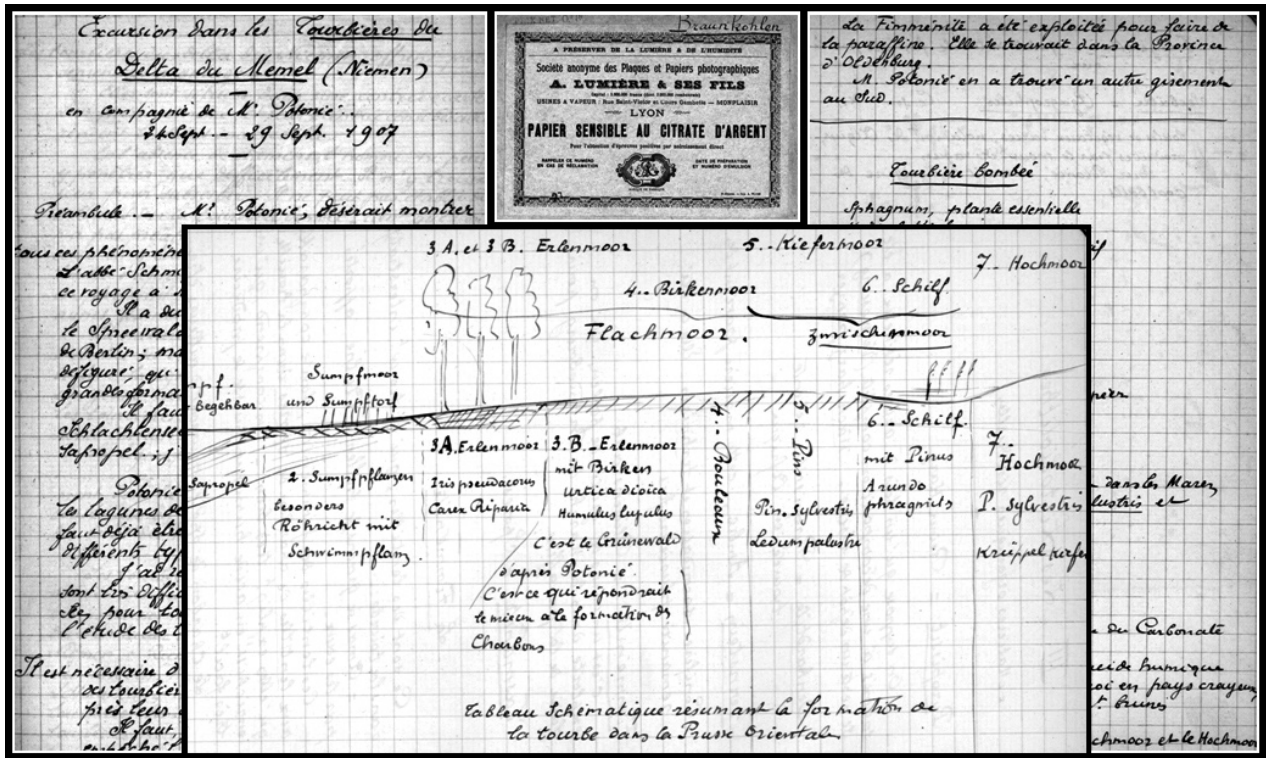 Excursion dans les Tourbières du
Delta du Memel (Niemen)
en compagnie de Mr Potonié.
24 Sept. - 29 Sept. 1907
Préambule. - Mr Potonié, désirait montrer
tous ces phénomène
L'abbé Schm
ce voyage à
Il a du
le Spreewald
de Berlin; ma
défiguré qu
grandes forma
Il fau
Schlachtense
Sapropel; j
Potonié
les lagunes de
faut déjà être
différents ty
J'ai
sont très diffi
l'étude des t
Il est nécessaire d
des tourbiè
près leur
Il faut,
Braunkohlen
A PRÉSERVER DE LA LUMIÈRE & DE L'HUMIDITÉ
Société anonyme des Plaques et Papiers photographiques
A. LUMIÈRE & SES FILS
USINES A VAPEUR : Rue Saint-Victor et Cours Gambetta — MONPLAISIR
LYON
PAPIER SENSIBLE AU CITRATE D'ARGENT
Pour l'obtention d'épreuves positives par noircissement direct
RAPPELER CE NUMÉRO
EN CAS DE RÉCLAMATION
DATE DE PRÉPARATION
ET NUMÉRO D'ÉMULSION
La Fimménite a été exploitée pour faire de
la paraffine. Elle se trouvait dans la Province
d'Oldenburg.
M. Potonié en a trouvé un autre gisement
au Sud.
Tourbière bombée
Sphagnum, plante essentielle
dans les Mares
lustris et
du Carbonate
cide humique
oi en pays crayeux
brunes
chmoor et le Hochmoor
3 A. et 3 B. Erlenmoor
5.- Kiefermoor
7.- Hochmoor
4.- Birkenmoor
6.- Schilf.
Flachmoor.
Zwischenmoor
Sumpfmoor
und Sumpftorf
pf.
begehbar
Sapropel
2. Sumpfpflanzen
besonders
Röhricht mit
Schwimmpflanz.
3A. Erlenmoor
Iris pseudacorus
Carex Riparia
3.B.- Erlenmoor
mit Birken
Urtica dioica
Humulus lupulus
C'est le Grünewald
d'après Potonié.
C'est ce qui répondrait
le mieux à la formation des
Charbons
4.- Bouleaux
5.- Pins
Pin. Sylvestris
Ledum palustre
6.- Schilf.
mit Pinus
Arundo
phragmits
7.-
Hochmoor
P. Sylvestris
Krüppelkiefer
Tableau Schématique résumant la formation de
la tourbe dans la Prusse Orientale